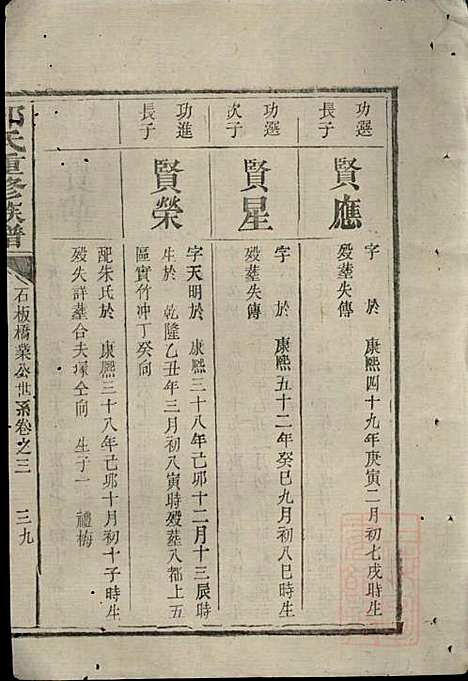 功選
長子
賢應
字 於 康熙四十九年庚寅二月初七戌時生
殁塟失傳
功選
次子
賢星
字 於 康熙五十二年癸巳九月初八巳時生
殁塟失傳
功進
長子
賢榮
字天明於 康熙三十八年己卯十二月十三辰時
生於 乾隆乙丑年三月初八寅時殁塟八都上五
區實竹冲丁癸向
配朱氏於 康熙三十八年己卯十月初十子時生
殁失詳塟合夫塚仝向 生子一 禮梅
氏重修族譜
石板橋業公世系卷之三 三九